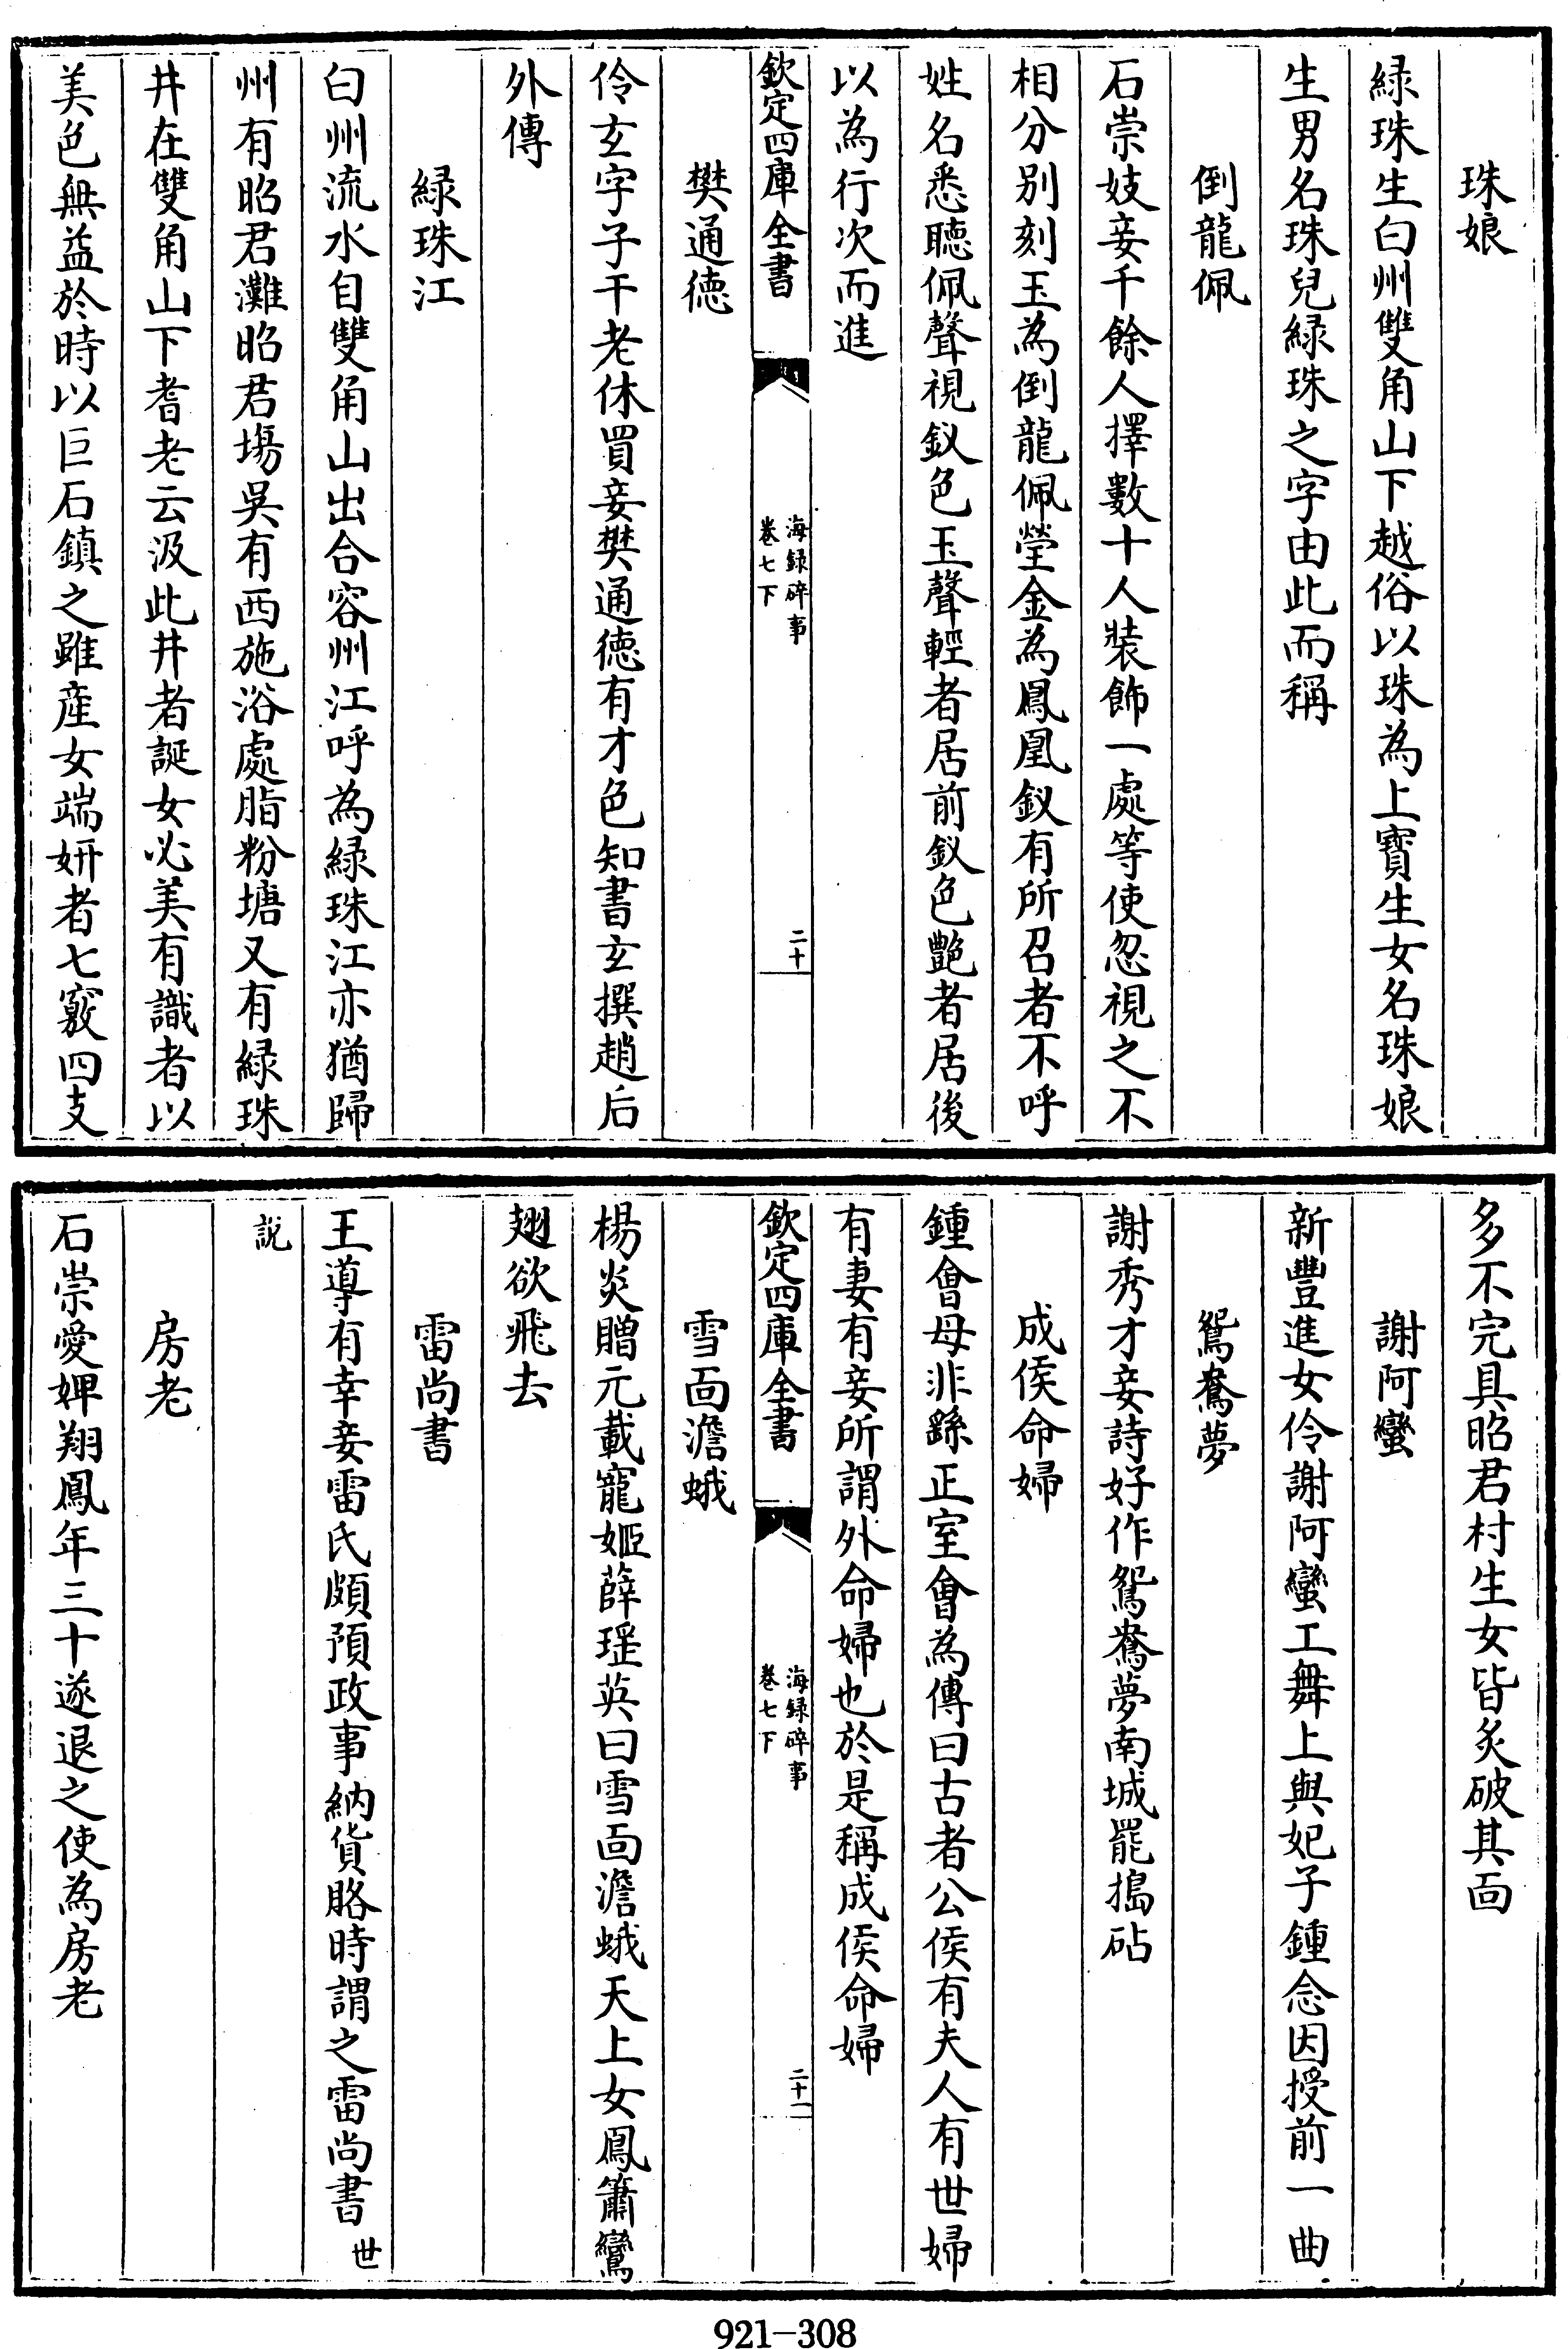 珠娘
緑珠生白州雙角山下越俗以珠為上寳生女名珠娘
生男名珠兒緑珠之字由此而稱
倒龍佩
石崇妓妾千餘人擇數十人裝飾一處等使忽視之不
相分别刻玉為倒龍佩瑩金為鳳凰釵有所召者不呼
姓名悉聽佩聲視釵色玉聲輕者居前釵色艶者居後
以為行次而進
欽定四庫全書
海録碎事
卷七下
二十
樊通德
伶玄字子干老休買妾樊通德有才色知書玄撰趙后
外傳
緑珠江
白州流水自雙角山出合容州江呼為緑珠江亦猶歸
州有昭君灘昭君塲吳有西施浴處脂粉塘又有緑珠
井在雙角山下耆老云汲此井者誕女必美有識者以
美色無益於時以巨石鎮之雖産女端妍者七竅四支
多不完具昭君村生女皆炙破其面
謝阿蠻
新豐進女伶謝阿蠻工舞上與妃子鍾念因授前一曲
鴛鴦夢
謝秀才妾詩好作鴛鴦夢南城罷搗砧
成侯命婦
鍾會母非繇正室會為傳曰古者公侯有夫人有世婦
有妻有妾所謂外命婦也於是稱成侯命婦
欽定四庫全書
海録碎事
卷七下
二十一
雪面澹蛾
楊炎贈元載寵姬薛瑶英曰雪面澹蛾天上女鳳簫鸞
翅欲飛去
雷尚書
王導有幸妾雷氏頗預政事納貨賂時謂之雷尚書世
說
房老
石崇愛婢翔鳳年三十遂退之使為房老
921-308